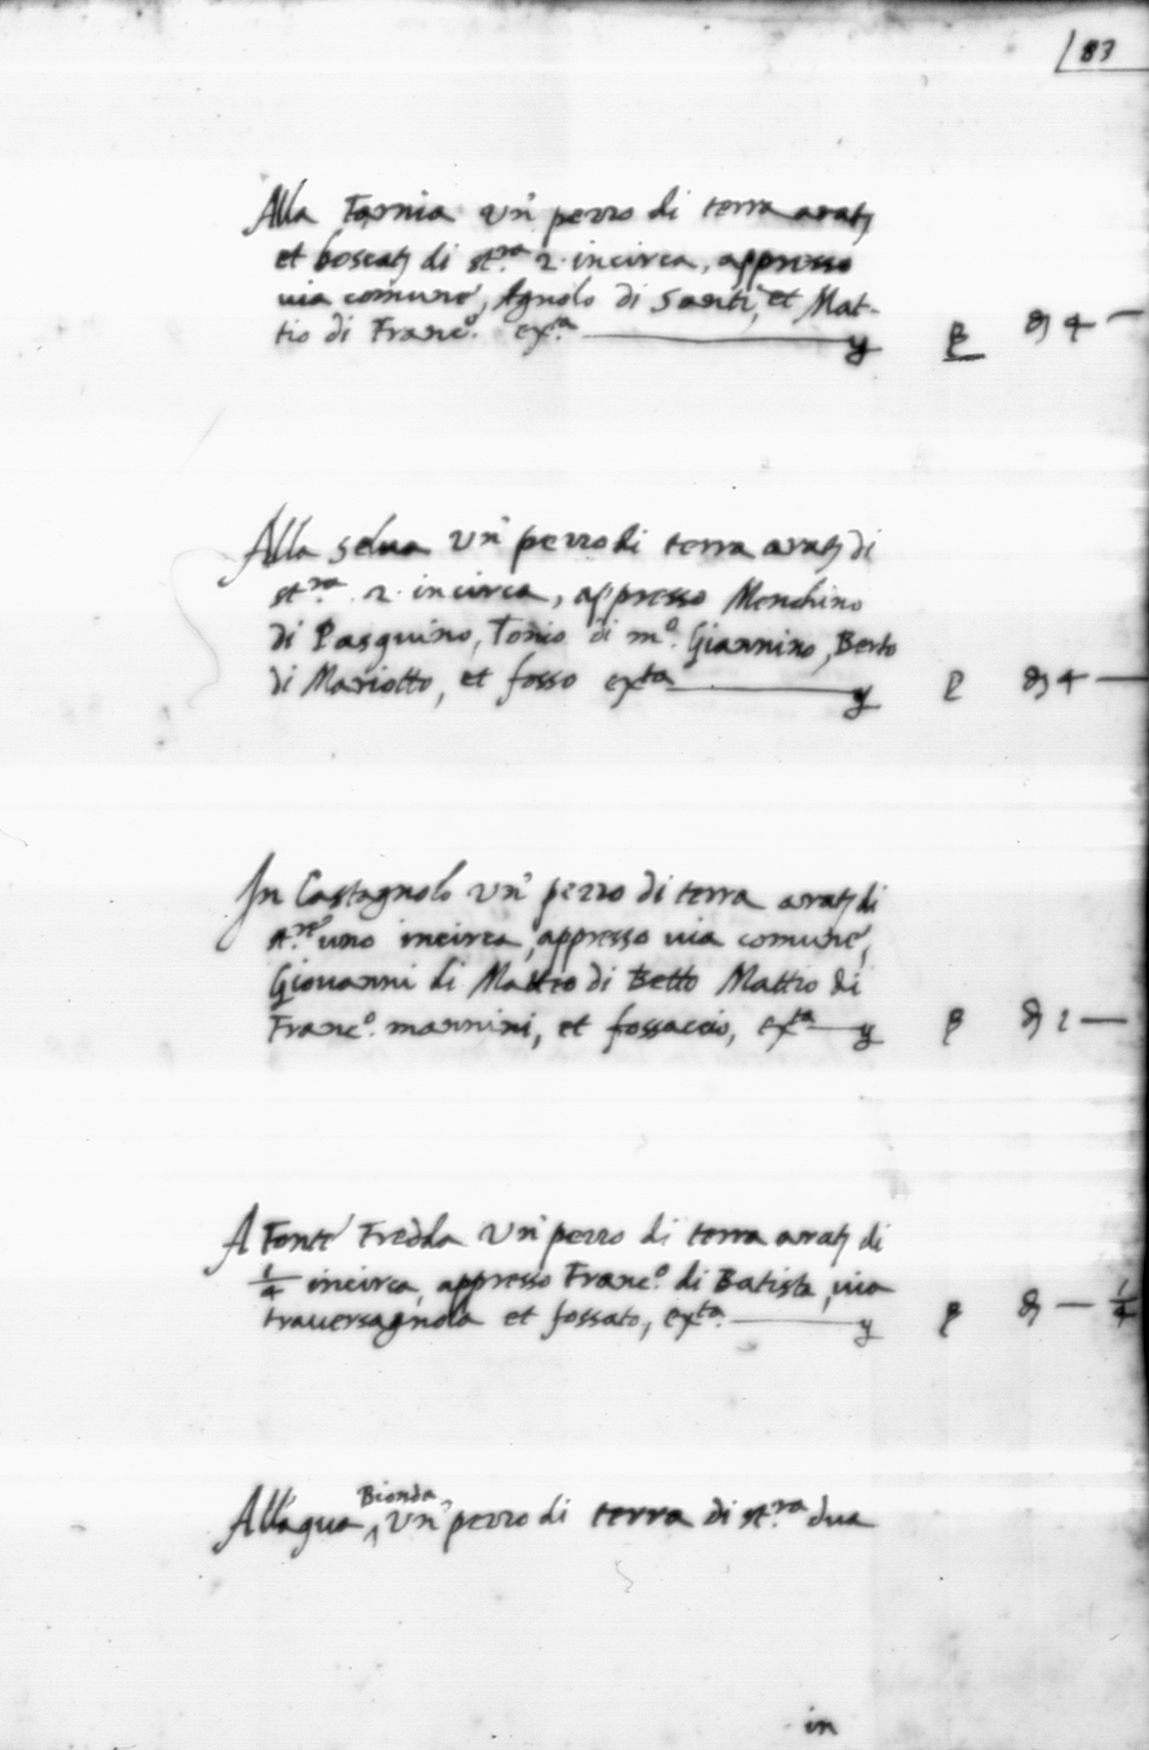 83
Alla Farnia un pezzo di terra arat.
et boscat. di st.ra 2. incirca, appresso
via comune, Agnolo di Santi, et Mat-
tio di Franc.o ex.ta
4 —
Alla selua un pezzo di terra arat. di
st.ra 2. incirca, appresso Menchino
di Pasquino, Tonio di m.o Giannino, Berto
di Mariotto, et fosso exta
4 —
In Castagnolo un pezzo di terra arat. di
st.re uno incirca, appresso uia comune,
Giouanni di Matteo di Betto Mattio di
Franc.o mannini, et fossaccio, exta
2 —
A Fonte Fredda un pezzo di terra arat. di
1/4 incirca, appresso Franc.o di Batista, uia
trauersagnola et fossato, exta.
— 1/4
All'aqua Bionda, un pezzo di terra di st.ra dua
in